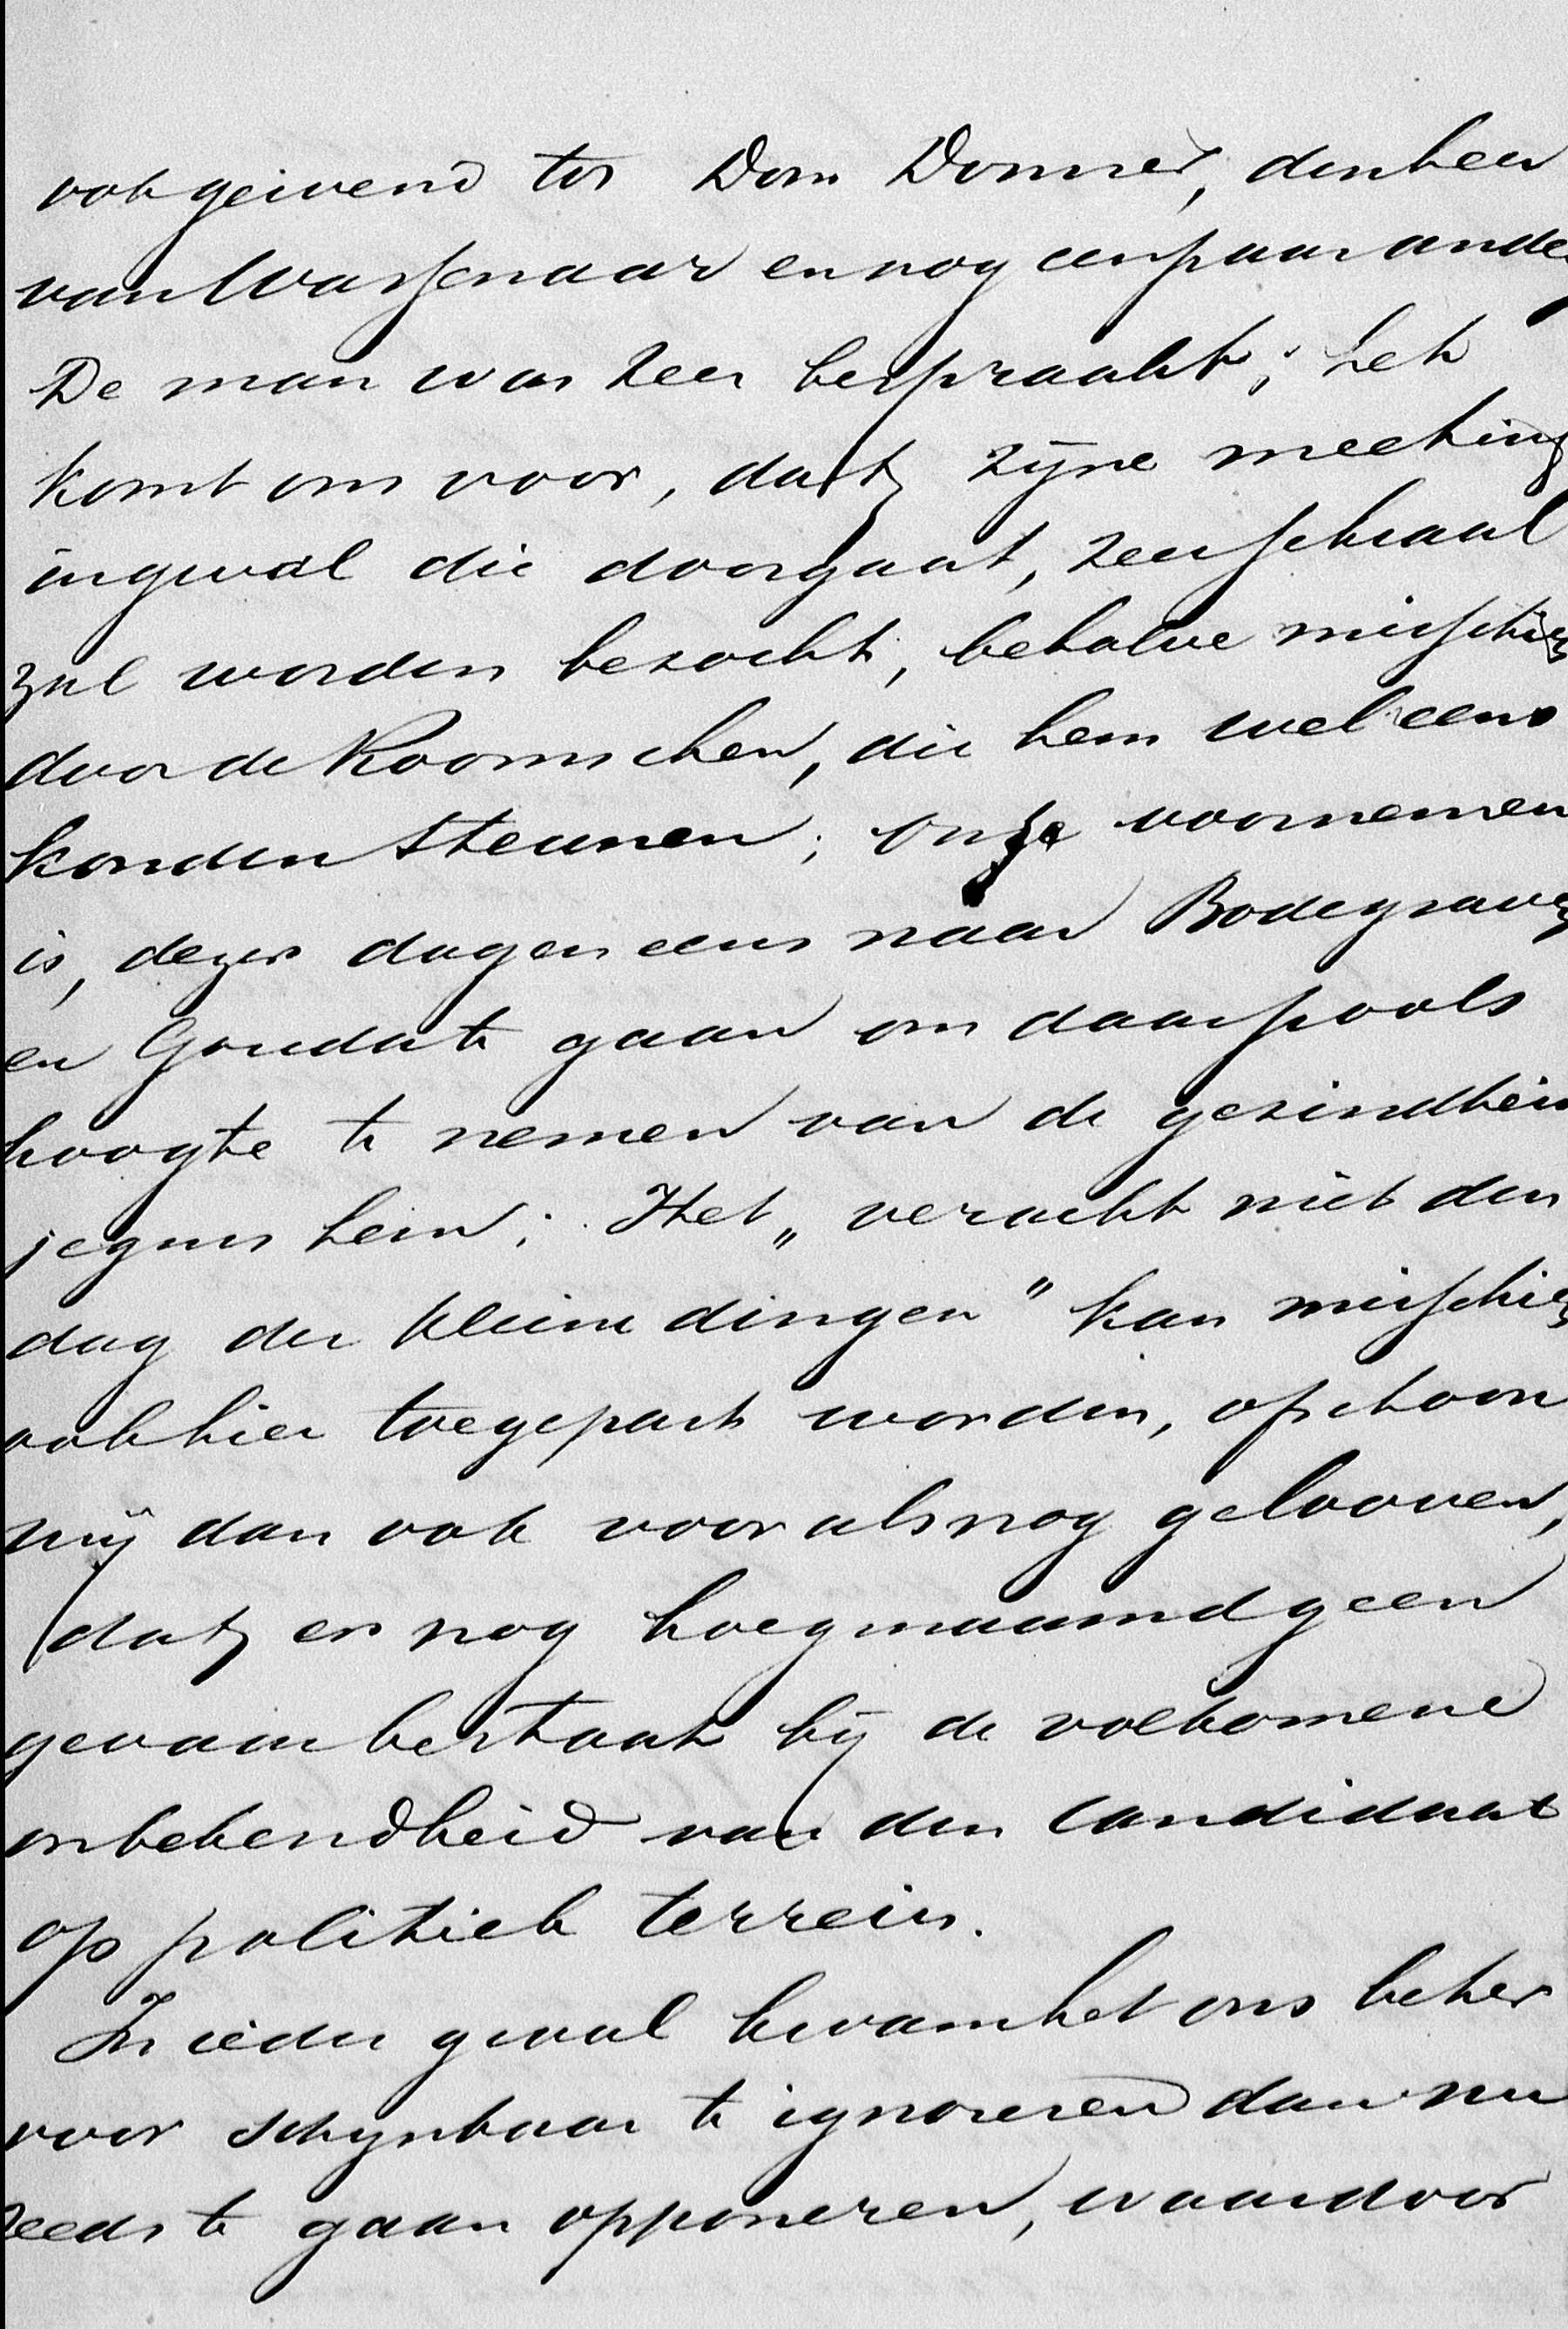 ook geweend tot Dom Donner, den heer
van Wassenaar en nog een paar ande
De man was zeer bespraakt; het
komt ons voor, dat zijne meeting
ingeval die doorgaat, zeer schraal
zal worden bezocht, behalve misschien
door de Roomschen, die hem wel eens
konden steunen; onze voornemen
is, dezer dagen eens naar Bodegraven
en Gouda te gaan om daar pools
hoogte te nemen van de gezindheid
jegens hem; Het „veracht niet den
dag der kleine dingen" kan misschien
ook hier toegepast worden, ofschoon
wij dan ook vooralsnog gelooven,
dat er nog hoegenaamd geen
gevaar bestaat bij de volkomene
onbekendheid van den candidaat
op politiek terrein.
In ieder geval kwam het ons beter
voor schijnbaar te ignoreren dan nu
reeds te gaan opponeren, waardoor